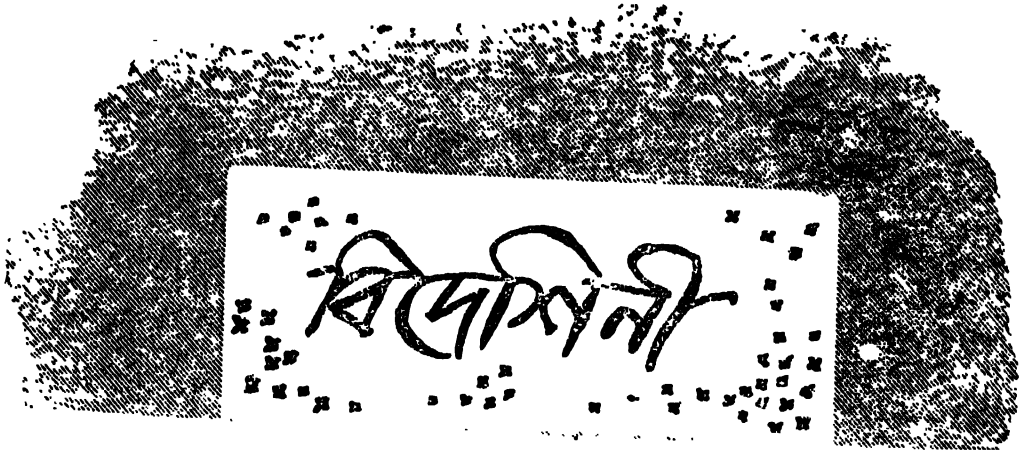 বিদেশিনী